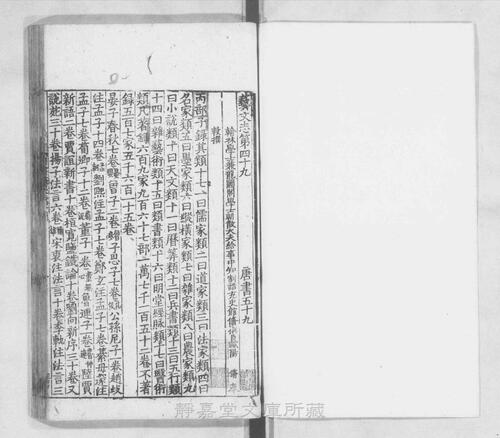 藝文志第四十九
唐書五十九
翰林學士兼龍圖閣學士朝散大夫給事中知制誥充史館脩撰臣歐陽脩奉
敕撰
丙部子錄其類十七一曰儒家類二曰道家類三曰法家類四曰
名家類五曰墨家類六曰縱橫家類七曰雜家類八曰農家類九
曰小說類十曰天文類十一曰曆筭類十二曰兵書類十三曰五行類
十四曰雜藝術類十五曰類書類十六曰明堂經脉類十七曰醫術
類凡著錄六百九家九百六十七部一萬七千一百五十二卷不著
錄五百七家五千六百一十五卷
晏子春秋七卷 曾子二卷 子思子七卷 公孫尼子一卷趙岐
注孟子十四卷 劉熙注孟子七卷鄭玄注孟子七卷綦毋邃注
孟子七卷荀卿子十二卷 董子一卷 魯連子一卷 陸賈
新語二卷賈誼新書十卷桓寬鹽鐵論十卷劉向新序三十卷又
說苑三十卷揚子法言六卷 宋衷注法言十卷李軌注法言三
靜嘉堂文庫所藏